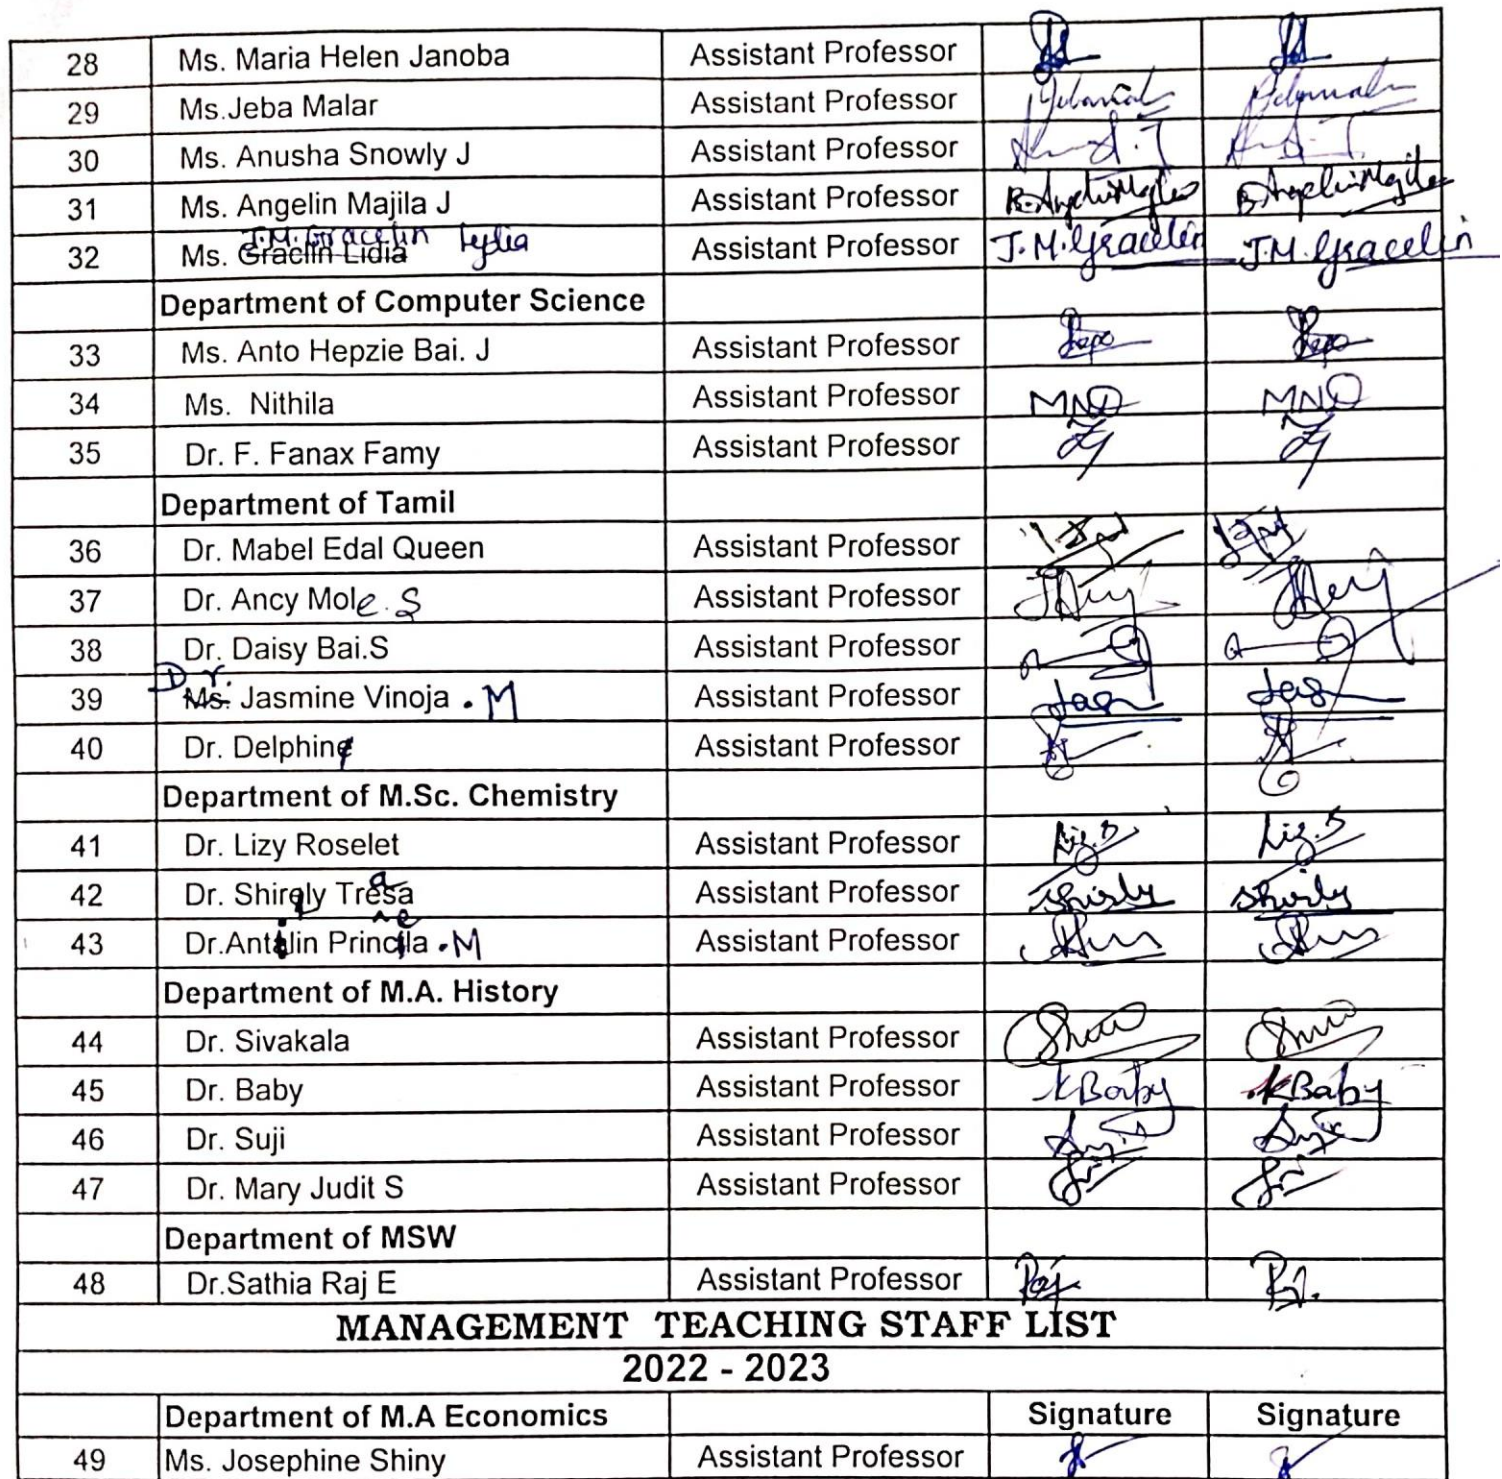 28 Ms. Maria Helen Janoba Assistant Professor
29 Ms.Jeba Malar Assistant Professor
30 Ms. Anusha Snowly J Assistant Professor
31 Ms. Angelin Majila J Assistant Professor
J.M. Gracelin Lydia
32 Ms. Graclin Lidia Assistant Professor J.M.Gracelin J.M.Gracelin
Department of Computer Science
33 Ms. Anto Hepzie Bai. J Assistant Professor
34 Ms. Nithila Assistant Professor
35 Dr. F. Fanax Famy Assistant Professor
Department of Tamil
36 Dr. Mabel Edal Queen Assistant Professor
37 Dr. Ancy Mole. S Assistant Professor
38 Dr. Daisy Bai.S Assistant Professor
Dr.
39 Ms. Jasmine Vinoja . M Assistant Professor Jas Jas
40 Dr. Delphin Assistant Professor
Department of M.Sc. Chemistry
41 Dr. Lizy Roselet Assistant Professor
42 Dr. Shirely Tresa Assistant Professor Shirly Shirly
43 Dr.Antilin Princila .M Assistant Professor
Department of M.A. History
44 Dr. Sivakala Assistant Professor
45 Dr. Baby Assistant Professor KBaby KBaby
46 Dr. Suji Assistant Professor
47 Dr. Mary Judit S Assistant Professor
Department of MSW
48 Dr.Sathia Raj E Assistant Professor Raj
MANAGEMENT TEACHING STAFF LIST
2022 - 2023
Department of M.A Economics Signature Signature
49 Ms. Josephine Shiny Assistant Professor